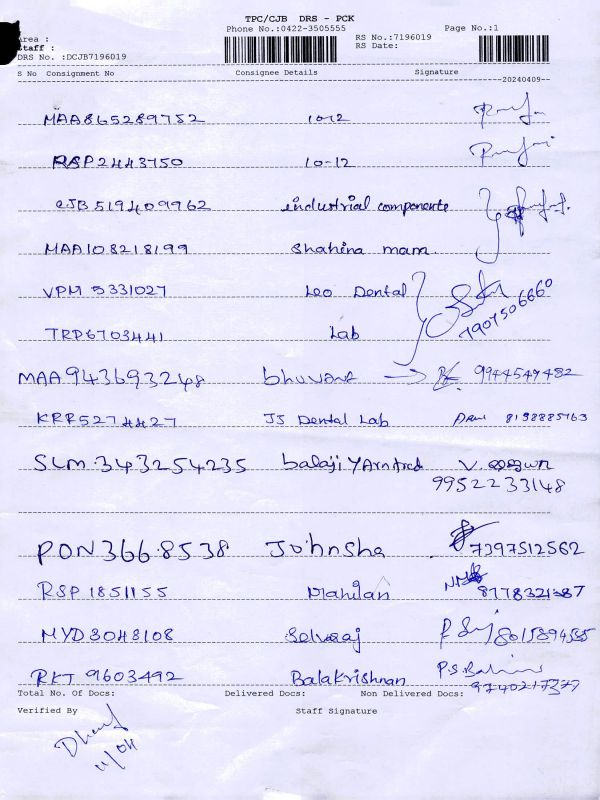 TPC/CJB DRS - PCK
Phone No.:0422-3505555 Page No.:1
Area : RS No.:7196019
Staff : RS Date:
DRS No. :DCJB7196019
S No Consignment No Consignee Details Signature
20240409
MAA865289752 10-12
RSP2443750 10-12
CJB519409962 industrial components
MAA108218199 Shahina mam
VPM 5331027 Leo Dental
7907506660
TRP6703441 Lab
MAA943693248 bhuvana 9944549482
KRR5274427 JJ Dental Lab 8198885763
SLM.343254235 balaji YArn tred
9952233148
PON366.8538 Johnsha 7397512562
RSP 1851155 Mahilan
MYD3048108 Selvaraj
RKT 9603492 Balakrishnan
Total No. Of Docs: Delivered Docs: Non Delivered Docs:
Verified By Staff Signature
11/04